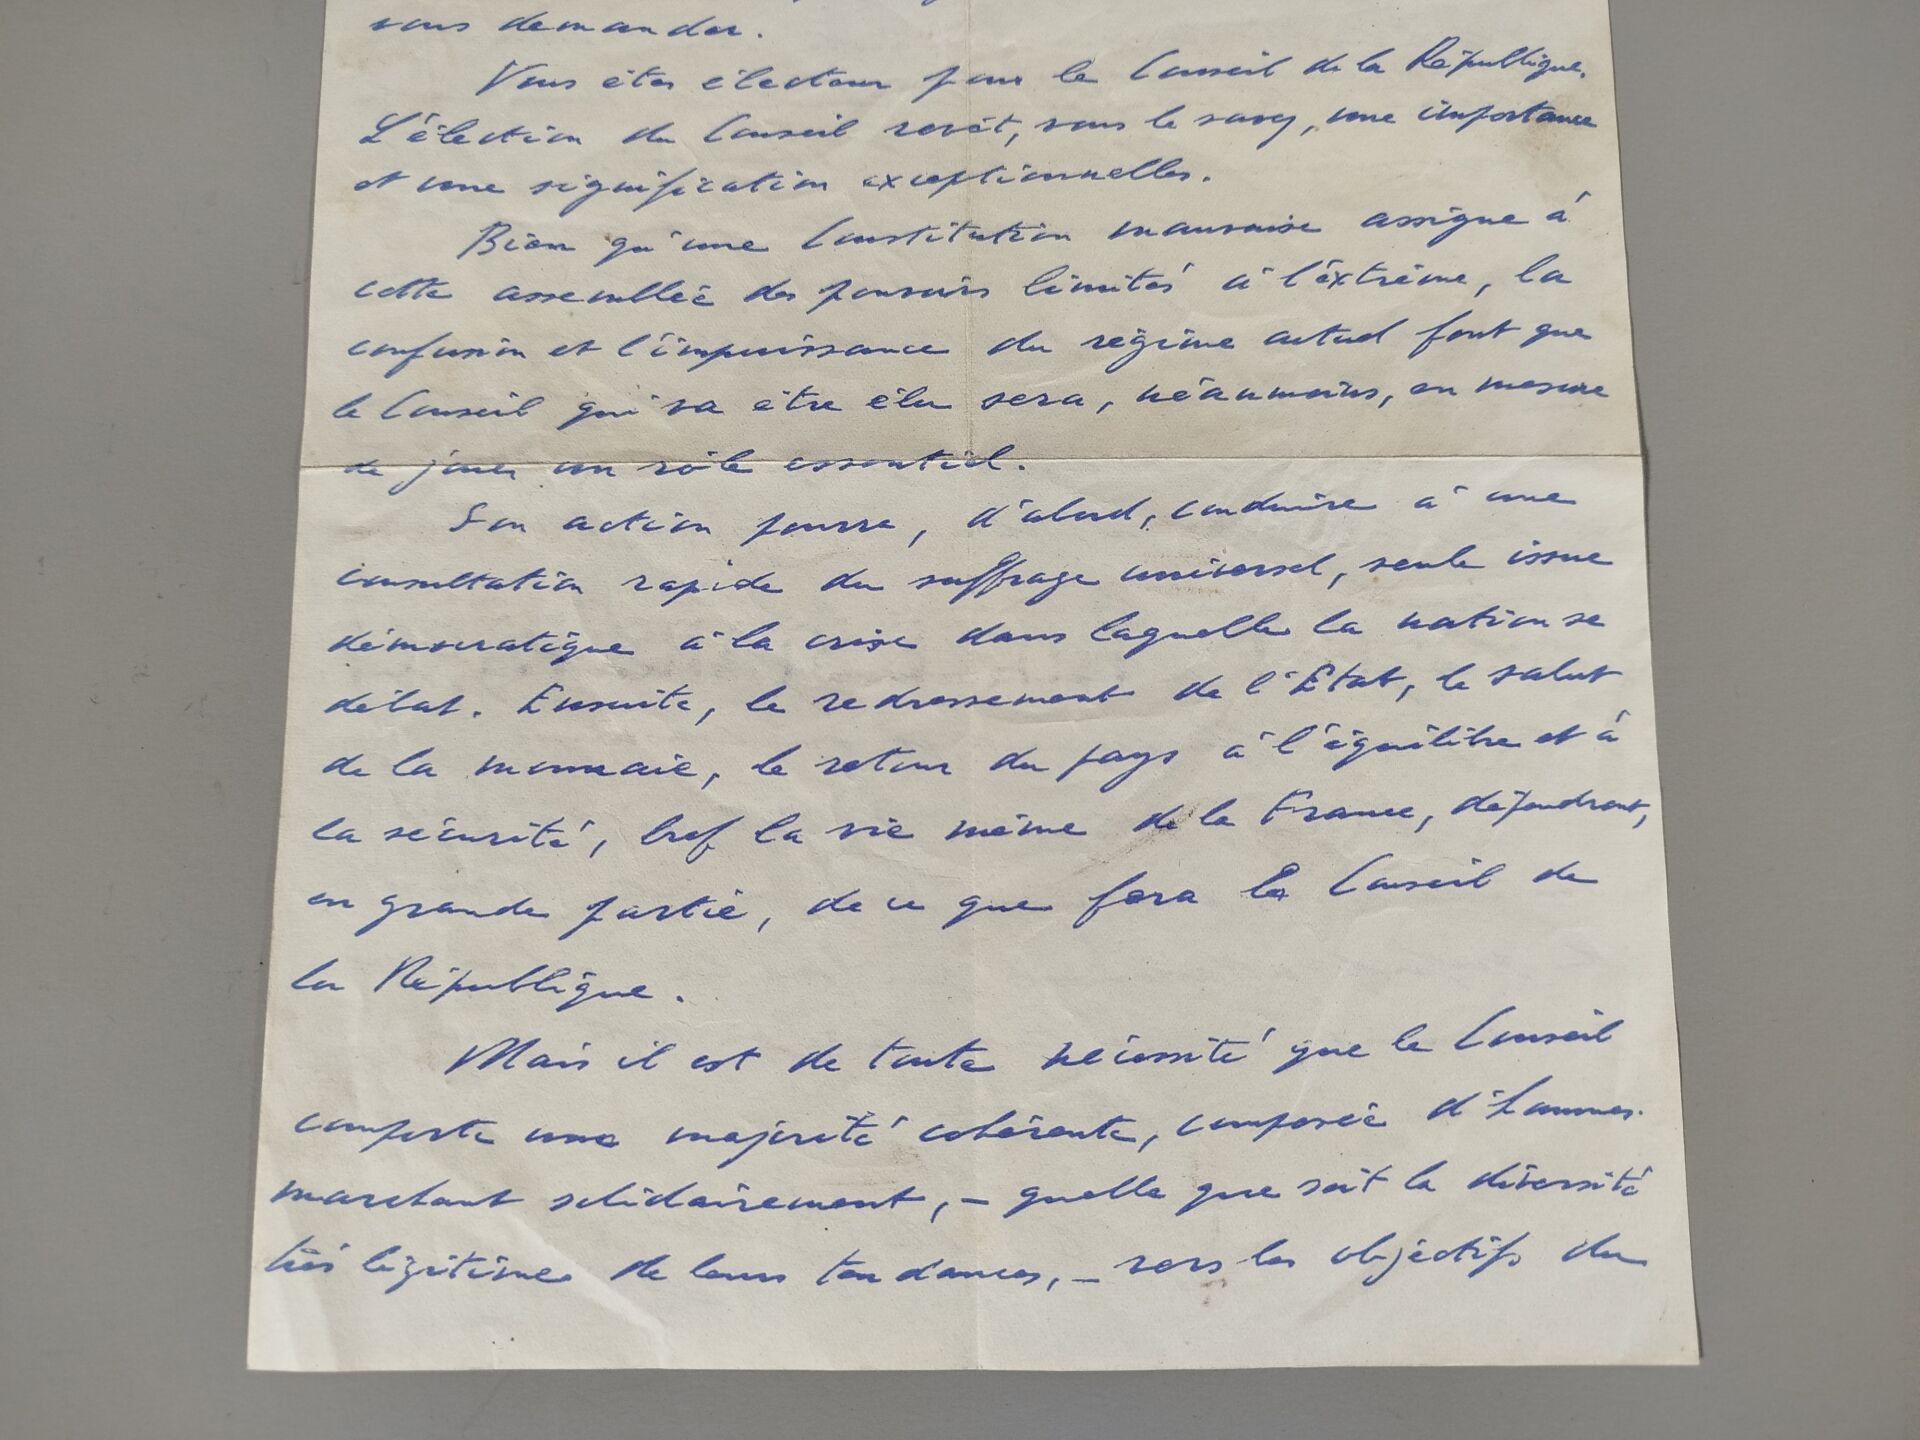 vous demander.
Vous êtes électeur pour le Conseil de la République.
L'élection du Conseil revêt, vous le savez, une importance
et une signification exceptionnelles.
Bien qu'une Constitution mauvaise assigne à
cette assemblée des pouvoirs limités à l'extrême, la
confusion et l'impuissance du régime actuel font que
le Conseil qui va être élu sera, néanmoins, en mesure
de jouer un rôle essentiel.
Son action pourra, d'abord, conduire à une
consultation rapide du suffrage universel, seule issue
démocratique à la crise dans laquelle la nation se
débat. Ensuite, le redressement de l'Etat, le salut
de la monnaie, le retour du pays à l'équilibre et à
la sécurité, bref la vie même de la France, dépendront,
en grande partie, de ce que fera le Conseil de
la République.
Mais il est de toute nécessité que le Conseil
comporte une majorité cohérente, composée d'hommes
marchant solidairement, - quelle que soit la diversité
très légitime de leurs tendances, - vers les objectifs du